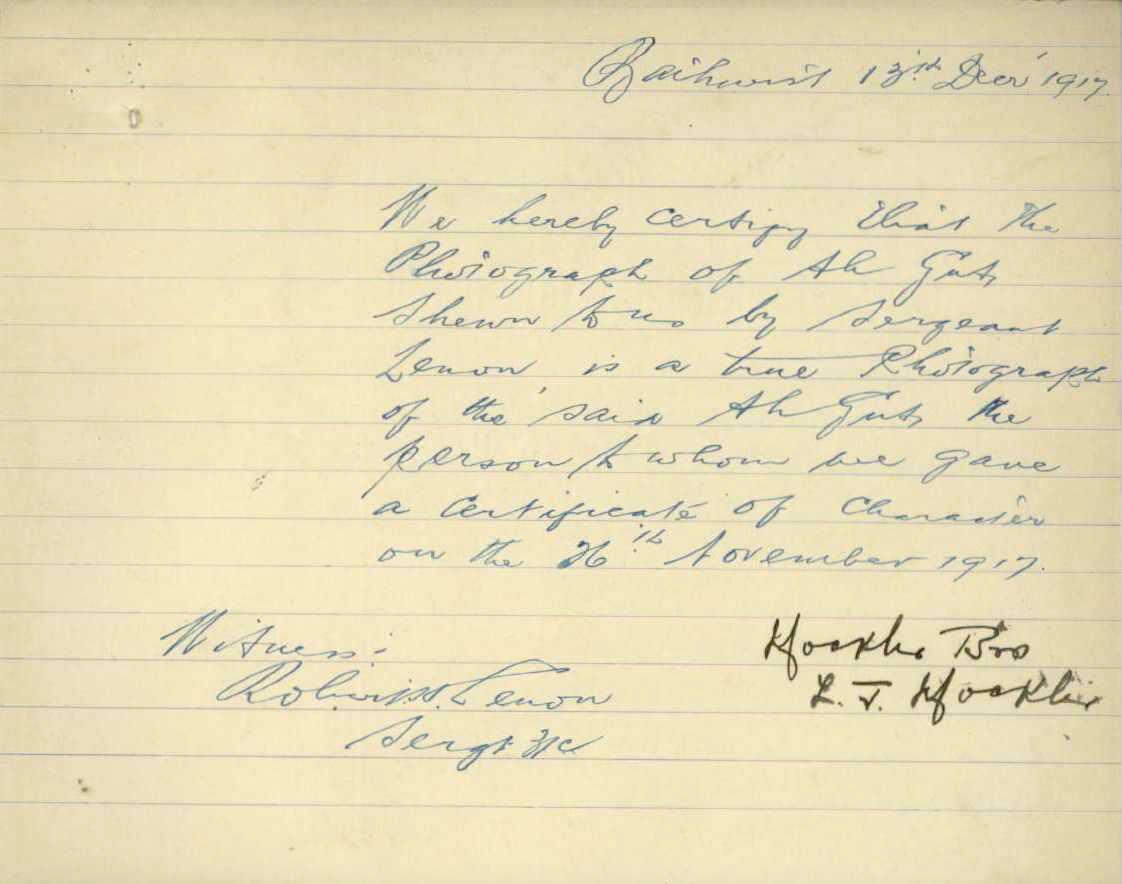 Bathurst 13th Decr 1917.
We hereby certify that the
Photograph of Ah Gut
Shewn to us by Sergeant
Lenon is a true Photograph
of the said Ah Gut, the
person to whom we gave
a Certificate of Character
on the 26th November 1917.
Witness:-
Lenon
Sergt
Bros
L. J.